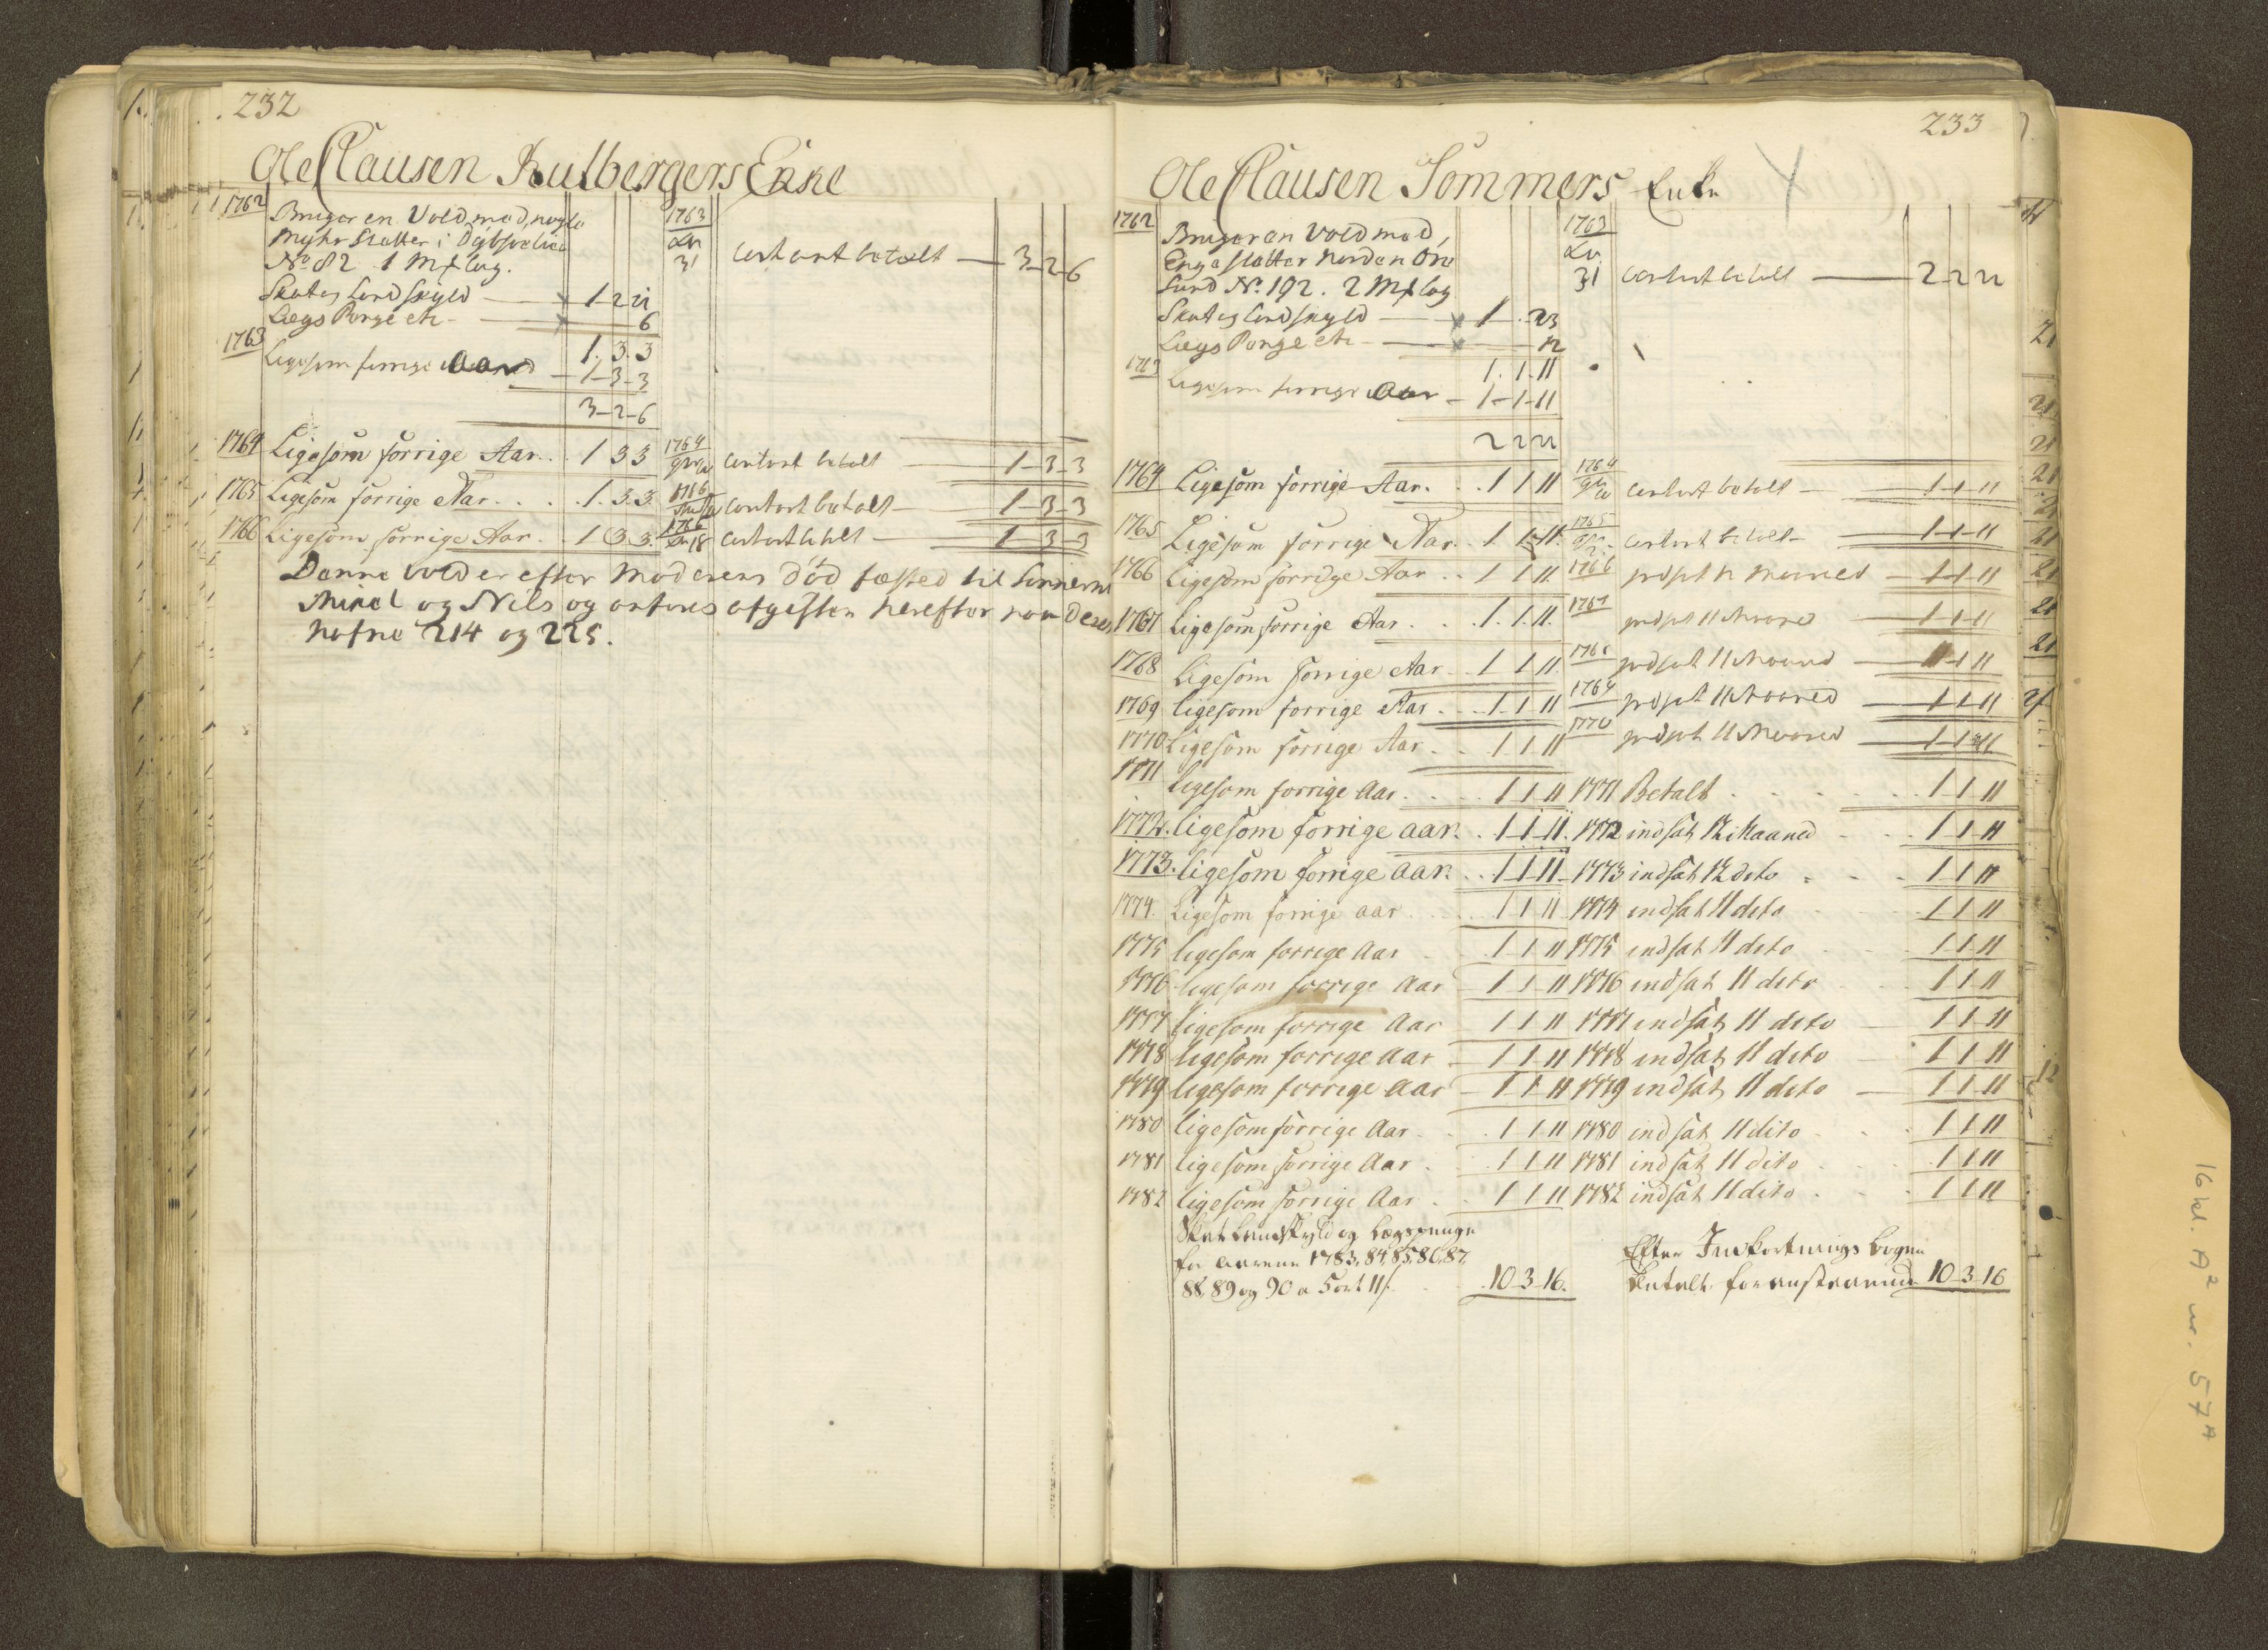 232
Ole Clausen Kulbergers Enke
1762 Bruger en Vold med nogle
Myhr Slatter i
No 82 1 Mk lag.
Skat og Landskyld — 1-2-21
Lægs Penge etc — 6
1.3.3
1763 Ligesom forrige Aar — 1-3-3
3-2-6
1763
31 Contant betalt — 3-2-6
1764 Ligesom forrige Aar. . 1 3 3 1764 Contant betalt — 1-3-3
1765 Ligesom forrige Aar . . . 1.3.3 Contant betalt — 1-3-3
1766 Ligesom forrige Aar . . 1 3 3. 1766 18 Contant betalt — 1-3-3
Denne Vold er efter Moderens Død fæsted til Sønnerne
og Nils og anføres afgiften herefter paa deres
Nafne 214 og 225.
233
Ole Clausen Sommers Enke
1762 Bruger en Vold med,
Enge slatter Norden
Sund No. 192. 2 Mk lag
Skat og Landskyld — 1 . 23
Lægs Penge etc — 12
1.1.11
1763 Ligesom forrige Aar — 1-1-11
2 2 22
1763
31 Contant betalt — 2-2-22
1764 Ligesom forrige Aar. . . 1 1 11 1764 Contant betalt — 1-1-11
1765 Ligesom forrige Aar. . 1 1-11. 1765 Contant betalt — 1-1-11
1766 Ligesom forrige Aar . . 1 1 11. 1766 indsat 12 Maaned — 1-1-11
1767 Ligesom forrige Aar . . . 1.1.11. 1767 indsat 11 Maaned — 1-1-11
1768 Ligesom forrige Aar — 1 1 11. 1768 indsat 11 Maaned — 1-1-11
1769 ligesom forrige Aar . . 1-1-11 1769 indsat 11 Maaned — 1-1-11
1770 Ligesom forrige Aar . . 1 1 11 1770 indsat 11 Maaned — 1-1-11
1771 ligesom forrige Aar . . . 1 1 11 1771 Betalt . . . . . 1-1-11
1772. ligesom forrige aar. . 1 1 11. 1772 indsat 12 Maaned . . 1-1-11
1773. ligesom forrige aar. . . 1 1 11 1773 indsat 12 dito . . . 1 1 11
1774. Ligesom forrige aar . . . 1 1 11 1774 indsat 11 dito 1 1 11
1775 ligesom forrige Aar . 1-1 11 1775 indsat 11 dito . . 1-1-11
1776 ligesom forrige Aar 1 1 11 1776 indsat 11 dito . 1 1 11
1777 ligesom forrige Aar — 1 1 11 1777 indsat 11 dito — 1-1-11
1778 ligesom forrige Aar — 1 1 11 1778 indsat 11 dito — 1 1 11
1779 ligesom forrige Aar — 1 1 11 1779 indsat 11 dito — 1 1-11
1780 ligesom forrige Aar . . . 1 1 11 1780 indsat 11 dito . . . 1 1 11
1781 ligesom forrige Aar . . 1 1 11 1781 indsat 11 dito . . . 1 1 11
1782 ligesom forrige Aar . . 1 1 11 1782 indsat 11 dito . . . 1 1 11
Skat Landskyld og Lægspenge
for Aarene 1783, 84, 85, 86, 87,
88, 89 og 90 a 5 ort 11 ß. . 10-3-16.
Efter Indkortnings Bogen
betalt foranstaaende 10-3-16
16 kl. A² nr. 57ª